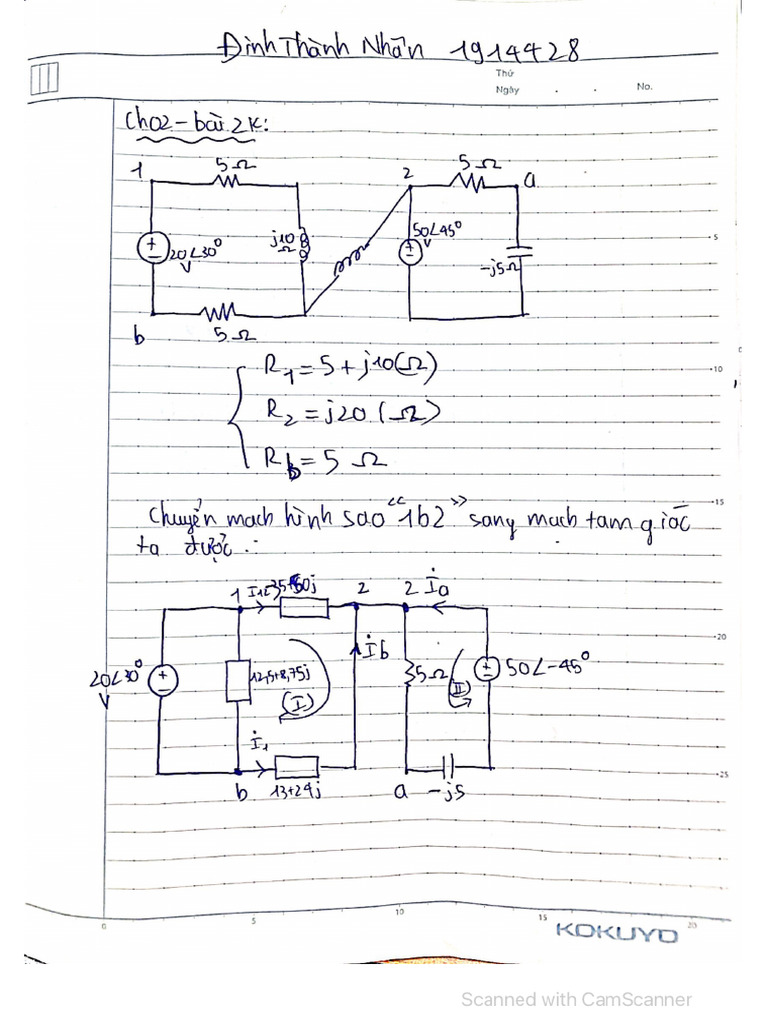 Đinh Thành Nhân 1914428
Thứ
Ngày . . No.
Ch02 - bài 2K:
1 5Ω 2 5Ω a
20∠30° V j10 Ω 50∠45° V -j5Ω
b 5Ω
R1 = 5 + j10 (Ω)
R2 = j20 (Ω)
Rb = 5 Ω
Chuyển mạch hình sao "1b2" sang mạch tam giác
ta được :
1 2 2 İa
20∠30° V 12,5+8,75j (I) İb 5Ω (II) 50∠-45°
İ1
b 13+24j a -j5
5
10
15
20
25
0 5 10 15 20
KOKUYO
Scanned with CamScanner